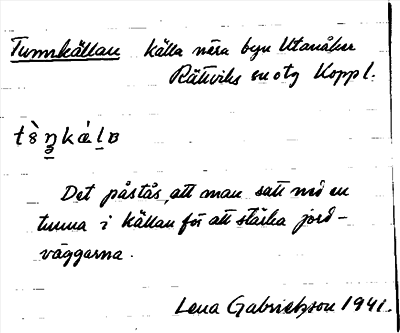 Tunnkällan källa nära byn Utanåker
Rättviks sn otg Koppl.
Det påstås, att man satt ned en
tunna i källan för att stärka jord-
väggarna.
Lena Gabrielsson 1941.